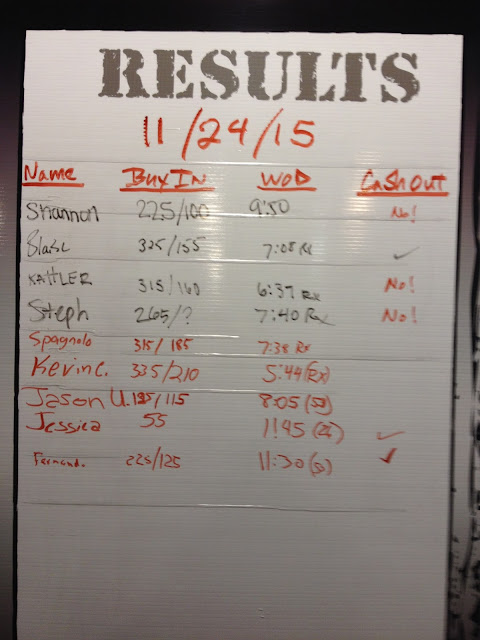 RESULTS
11/24/15
Name Buy IN WOD Cash Out
Shannon 225/100 9:50 No!
Blaise 325/155 7:08 Rx ✓
KAttLER 315/160 6:37 Rx No!
Steph 265/? 7:40 Rx No!
Spagnolo 315/185 7:38 Rx
Kevin C. 335/210 5:44 (Rx)
Jason U. /115 8:05
Jessica 55 ✓
Fernand. 225/125 11:30 ✓